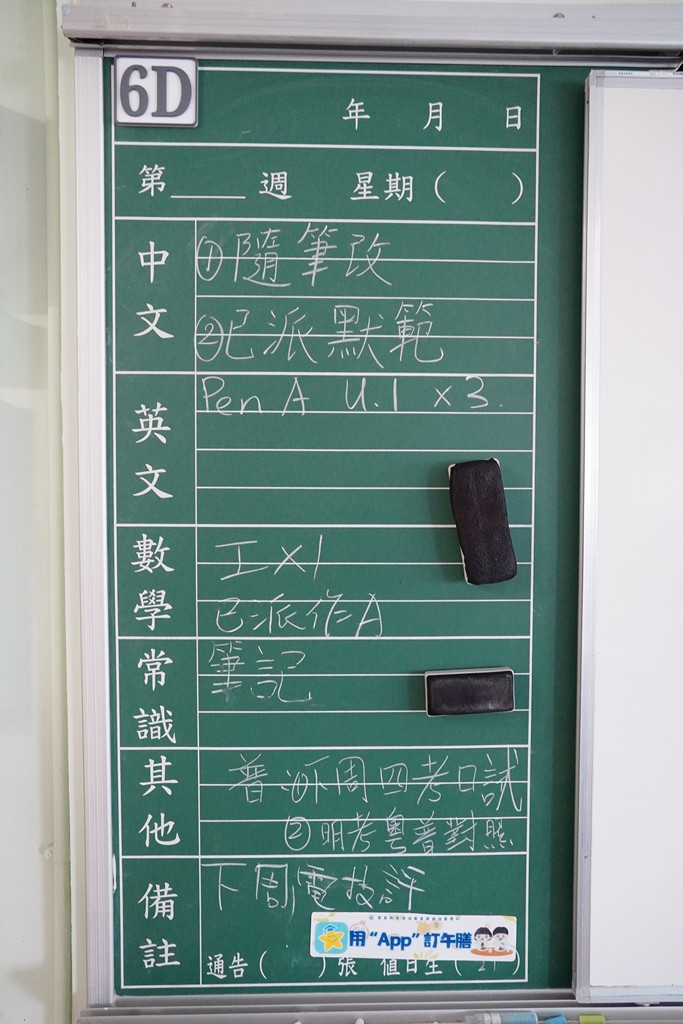 6D
年 月 日
第____週 星期( )
中文
①隨筆改
②已派默範
英文
Pen A U.1 x3.
數學
工x1
已派作A
常識
筆記
其他
普:①下周四考口試
②明考粵普對照
備註
下周電技評
用“App”訂午膳
通告( )張 值日生( 21 )